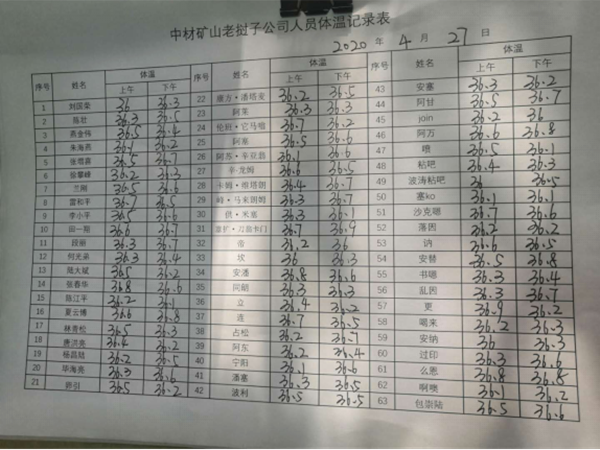 中材矿山老挝子公司人员体温记录表
2020 年 4 月 27 日
序号 姓名 体温 上午 下午
1 刘国荣 36 36.3
2 陈壮 36.3 36.5
3 燕金伟 36.5 36.4
4 朱海燕 36.1 36.2
5 36.5 36.7
6 徐攀峰 36.2 36.3
7 兰刚 36.5 36.6
8 雷和平 36.7 36.5
9 李小平 36.5 36.6
10 田一翔 36.6 36.7
11 段丽 36.3 36.7
12 何光弟 36.3 36.4
13 陆大斌 36.5 36.2
14 张春华 36.8 36.6
15 陈江平 36.2 36.1
16 夏云博 36.6 36.8
17 林青松 36.5 36.3
18 唐洪亮 36.4 36.2
19 杨昌陆 36.2 36.5
20 毕海亮 36.3 36.6
21 36.5 36.2
序号 姓名 体温 上午 下午
22 康万·潘塔麦 36.2 36.5
23 阿莱 36.3 36.3
24 伦班·它马喳 36.7 36.2
25 阿塞 36.5 36.6
26 阿苏·辛豆县 36.1 36.6
27 辛·龙姆 36.6 36.5
28 卡姆·维塔朗 36.4 36.7
29 峰·马来朗姆 36.3 36.7
30 供·米塞 36.3 36.1
31 塞扩·刀高卡门 36.7 36.9
32 36.2 36
33 坎 36 36.3
34 安潘 36.8 36.6
35 同朗 36.3 36.3
36 立 36.4 36.2
37 连 36.7 36.5
38 占松 36.2 36.7
39 阿东 36.2 36.4
40 宁阳 36.1 36.6
41 潘塞 36.3 36.5
42 波利 36.5 36.5
序号 姓名 体温 上午 下午
43 安塞 36.3 36.2
44 阿甘 36.5 36.7
45 join 36.2 36
46 阿万 36.6 36.8
47 喷 36.5 36.1
48 粘吧 36.4 36.3
49 波涛粘吧 36 36.5
50 塞ko 36.1 36.1
51 沙克嗯 36.7 36.6
52 落因 36.2 36.2
53 讷 36.6 36.5
54 安替 36.5 36.8
55 书嗯 36.3 36.4
56 乱因 36.3 36.7
57 更 36.9 36.2
58 喝来 36.2 36.3
59 安纳 36 36.3
60 过印 36.3 36.6
61 么恩 36.8 36.8
62 啊噢 36.1 36.2
63 包崇陆 36.5 36.6